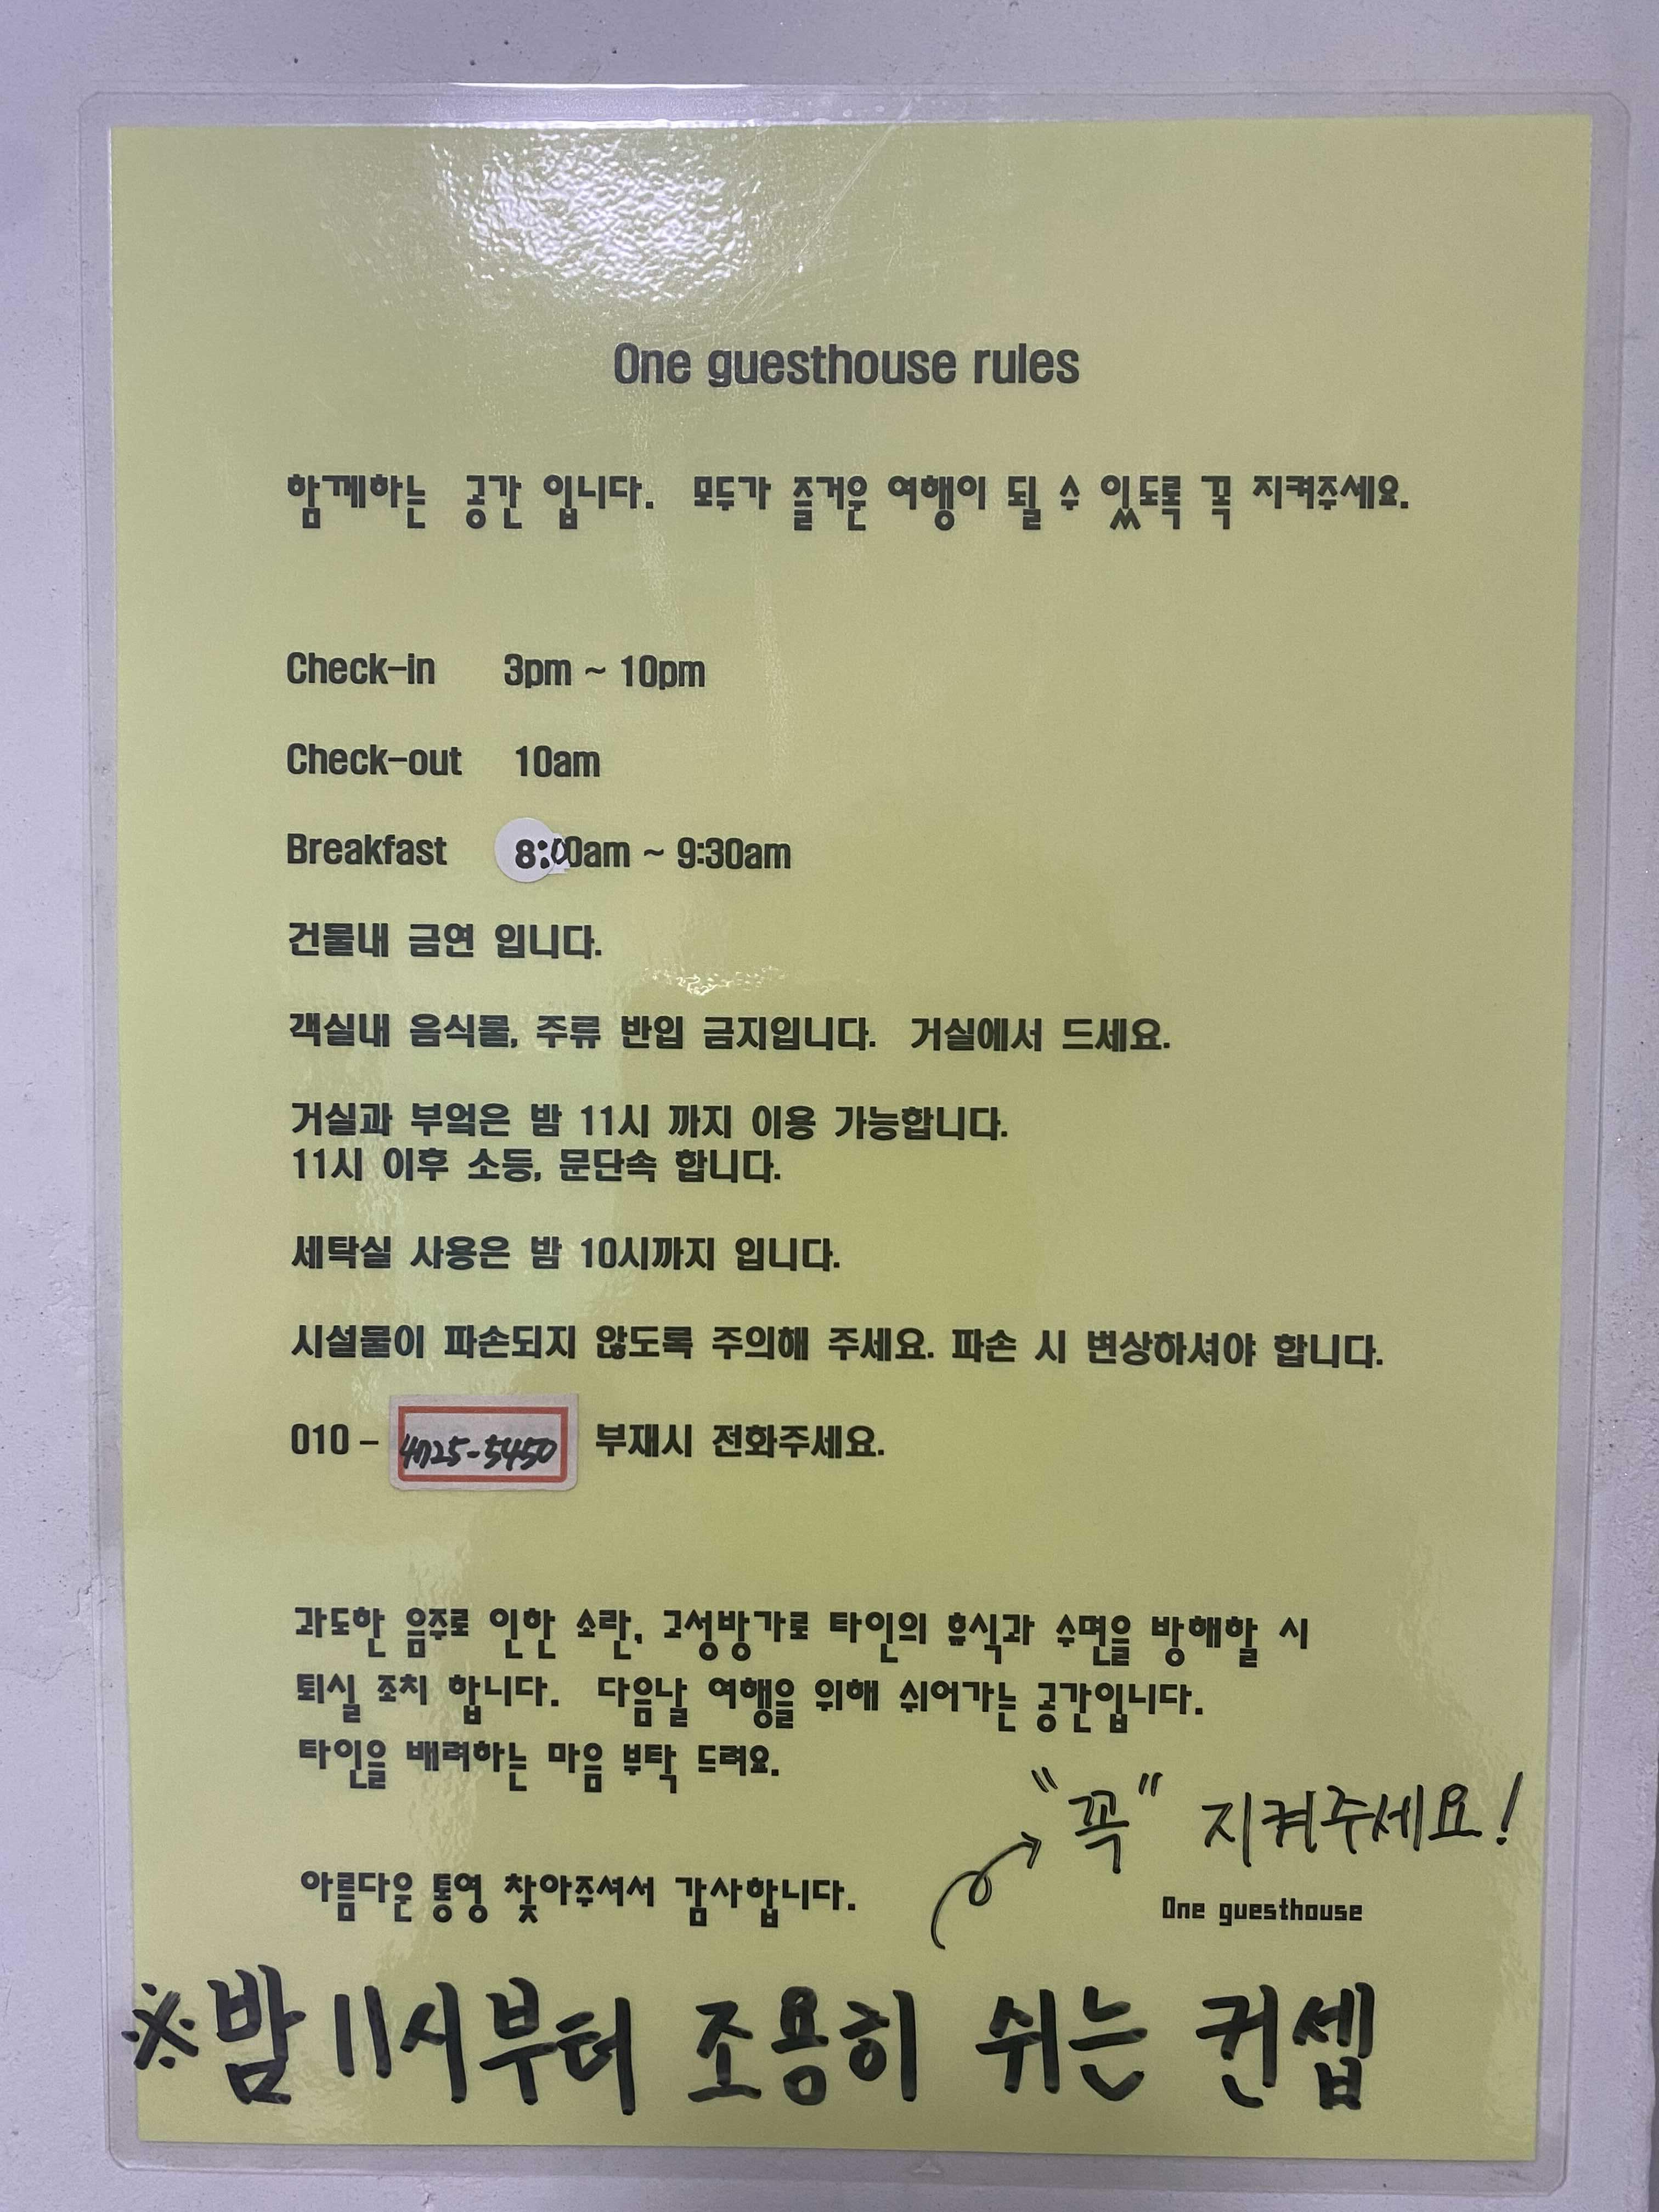 One guesthouse rules
함께하는 공간 입니다. 모두가 즐거운 여행이 될 수 있도록 꼭 지켜주세요.
Check-in 3pm ~ 10pm
Check-out 10am
Breakfast 8:00am ~ 9:30am
건물내 금연 입니다.
객실내 음식물, 주류 반입 금지입니다. 거실에서 드세요.
거실과 부엌은 밤 11시 까지 이용 가능합니다.
11시 이후 소등, 문단속 합니다.
세탁실 사용은 밤 10시까지 입니다.
시설물이 파손되지 않도록 주의해 주세요. 파손 시 변상하셔야 합니다.
010 - 부재시 전화주세요.
과도한 음주로 인한 소란, 고성방가로 타인의 휴식과 수면을 방해할 시
퇴실 조치 합니다. 다음날 여행을 위해 쉬어가는 공간입니다.
타인을 배려하는 마음 부탁 드려요.
"꼭" 지켜주세요!
아름다운 통영 찾아주셔서 감사합니다.
One guesthouse
※밤 11시부터 조용히 쉬는 컨셉